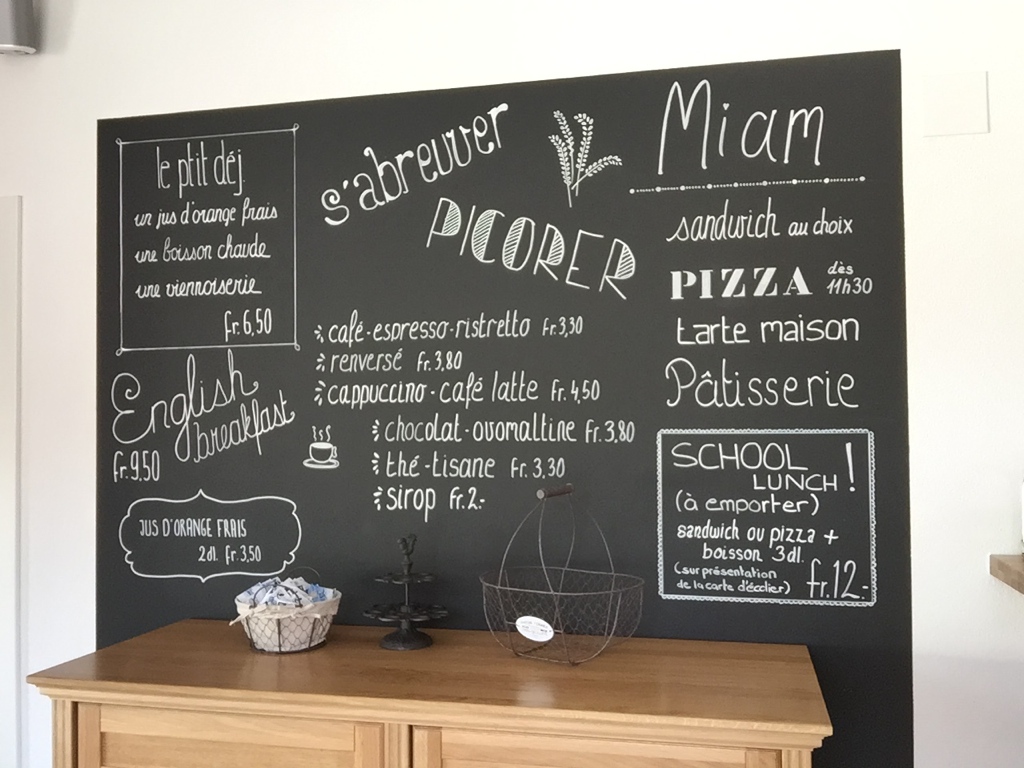 le ptit déj
un jus d'orange frais
une boisson chaude
une viennoiserie
fr. 6,50
English
breakfast
fr. 9.50
JUS D'ORANGE FRAIS
2dl. fr. 3,50
s'abreuver
PICORER
café-espresso-ristretto fr. 3,30
renversé fr. 3,80
cappuccino-café latte fr. 4,50
chocolat-ovomaltine fr. 3,80
thé-tisane fr. 3,30
sirop fr. 2.-
Miam
sandwich au choix
PIZZA dès 11h30
tarte maison
Pâtisserie
SCHOOL
LUNCH !
(à emporter)
sandwich ou pizza +
boisson 3dl.
(sur présentation
de la carte d'écolier) fr. 12.-